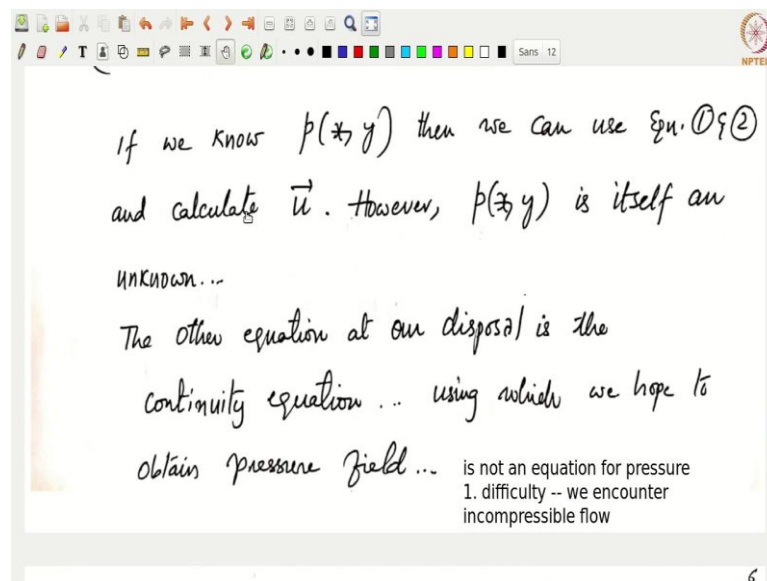 Sans 12
NPTEL
If we know p(x, y) then we can use Eqn. ① & ②
and calculate u⃗. However, p(x, y) is itself an
unknown...
The other equation at our disposal is the
continuity equation... using which we hope to
obtain pressure field...
is not an equation for pressure
1. difficulty -- we encounter
incompressible flow
6